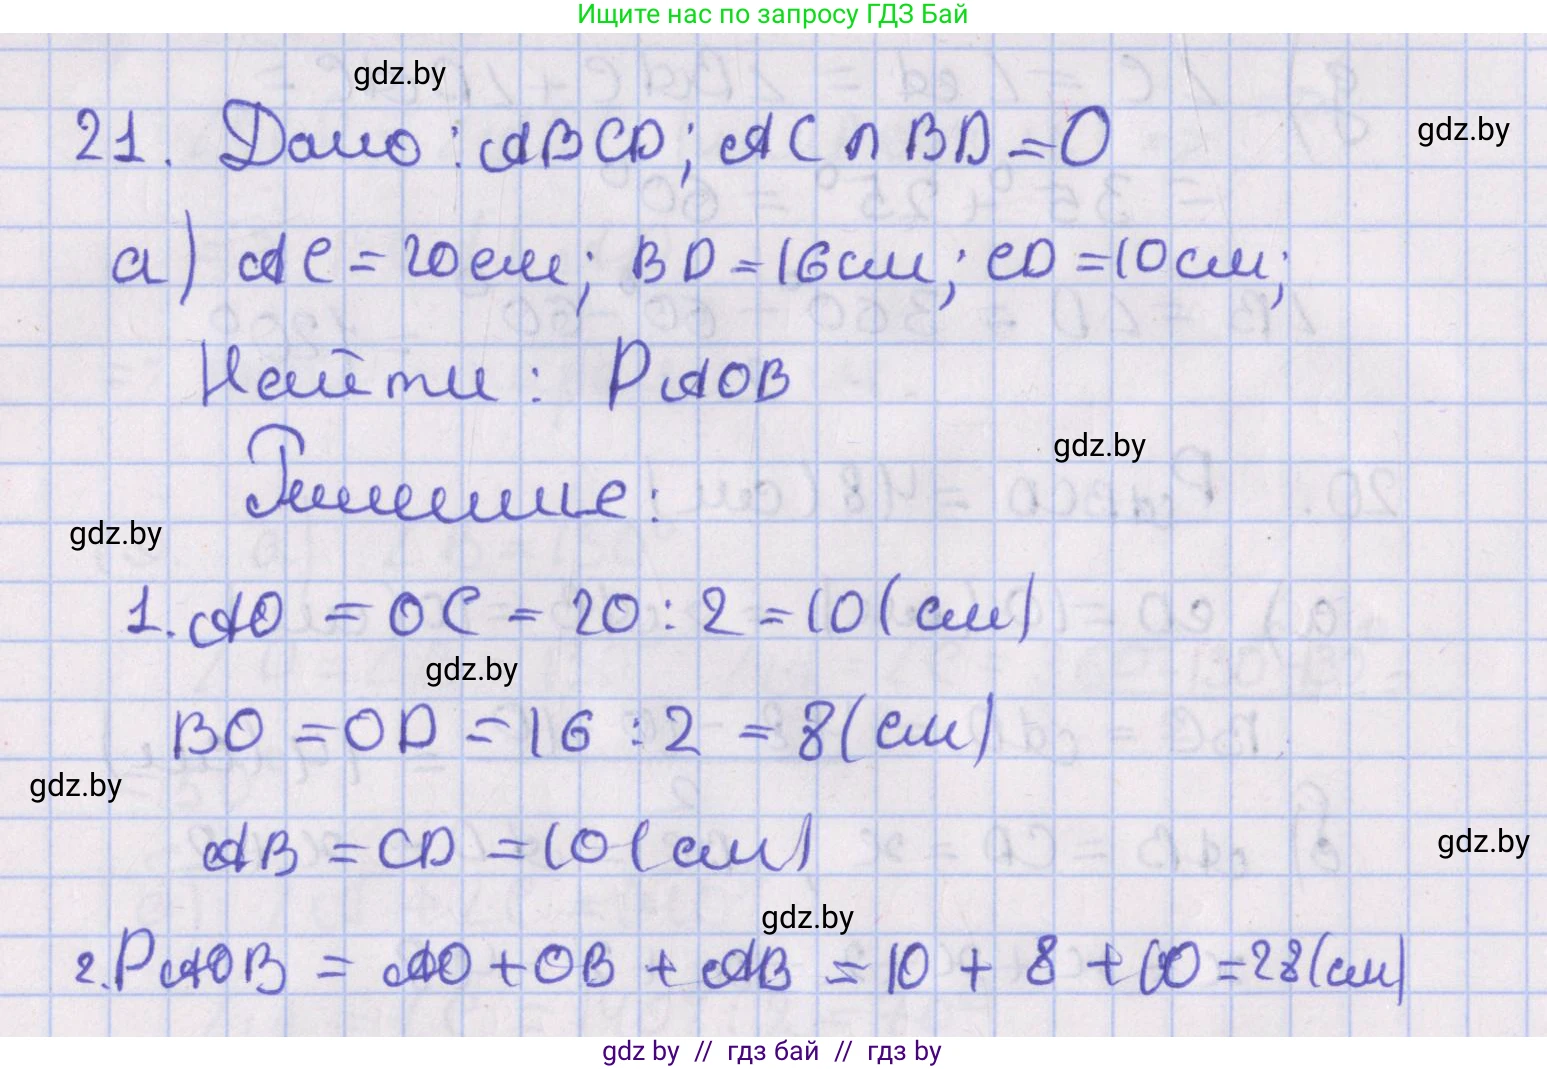 Ищите нас по запросу ГДЗ Бай
gdz.by
21. Дано: ABCD; AC ∩ BD = O
gdz.by
а) AC = 20 см; BD = 16 см; CD = 10 см;
Найти: PAOB
gdz.by
Решение:
gdz.by
1. AO = OC = 20 : 2 = 10 (см)
gdz.by
BO = OD = 16 : 2 = 8 (см)
gdz.by
AB = CD = 10 (см)
gdz.by
gdz.by
2. PAOB = AO + OB + AB = 10 + 8 + 10 = 28 (см)
gdz by // гдз бай // гдз by